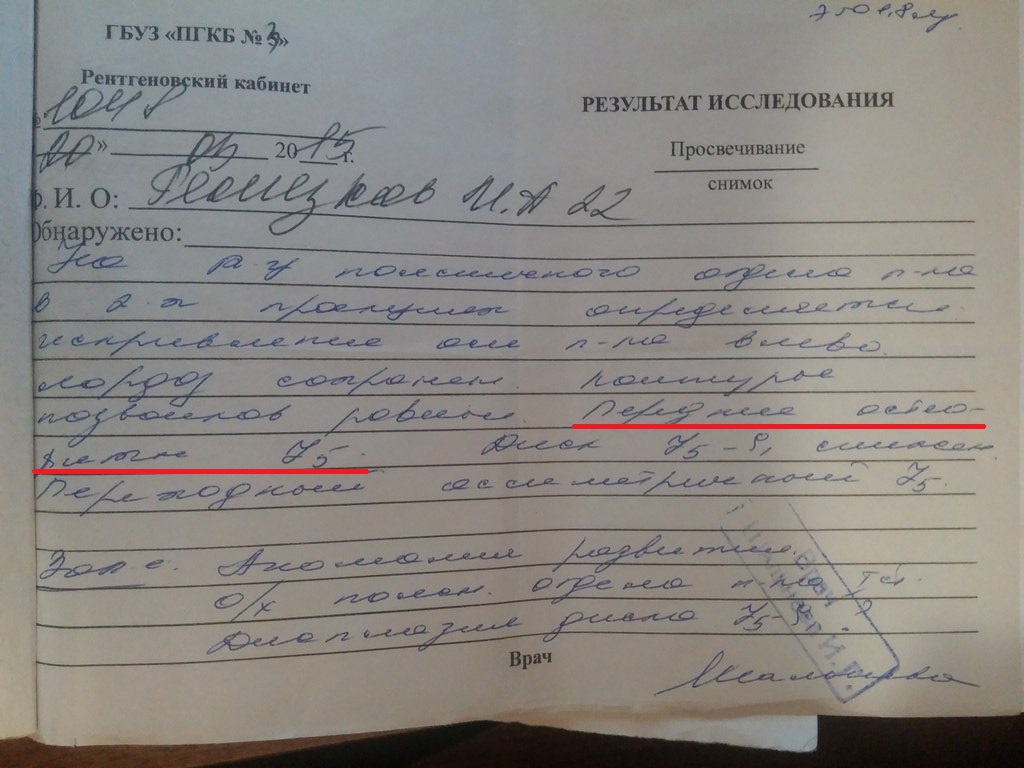 ГБУЗ «ПГКБ № 3»
Рентгеновский кабинет
РЕЗУЛЬТАТ ИССЛЕДОВАНИЯ
Просвечивание
снимок
20 15 г.
Ф. И. О: И. А 22
Обнаружено:
На р-гр поясничного отдела п-ка
в 2-х проекциях определяется
искривление оси п-ка влево.
лордоз сохранен. Контуры
позвонков ровные. Передние остео-
фиты L5. Диск L5-S1 снижен
Переходный ассиметричный L5.
Закл. Аномалия развития.
о/х поясн. отдела п-ка I ст.
Дисплазия диска L5-S1 ?
Врач